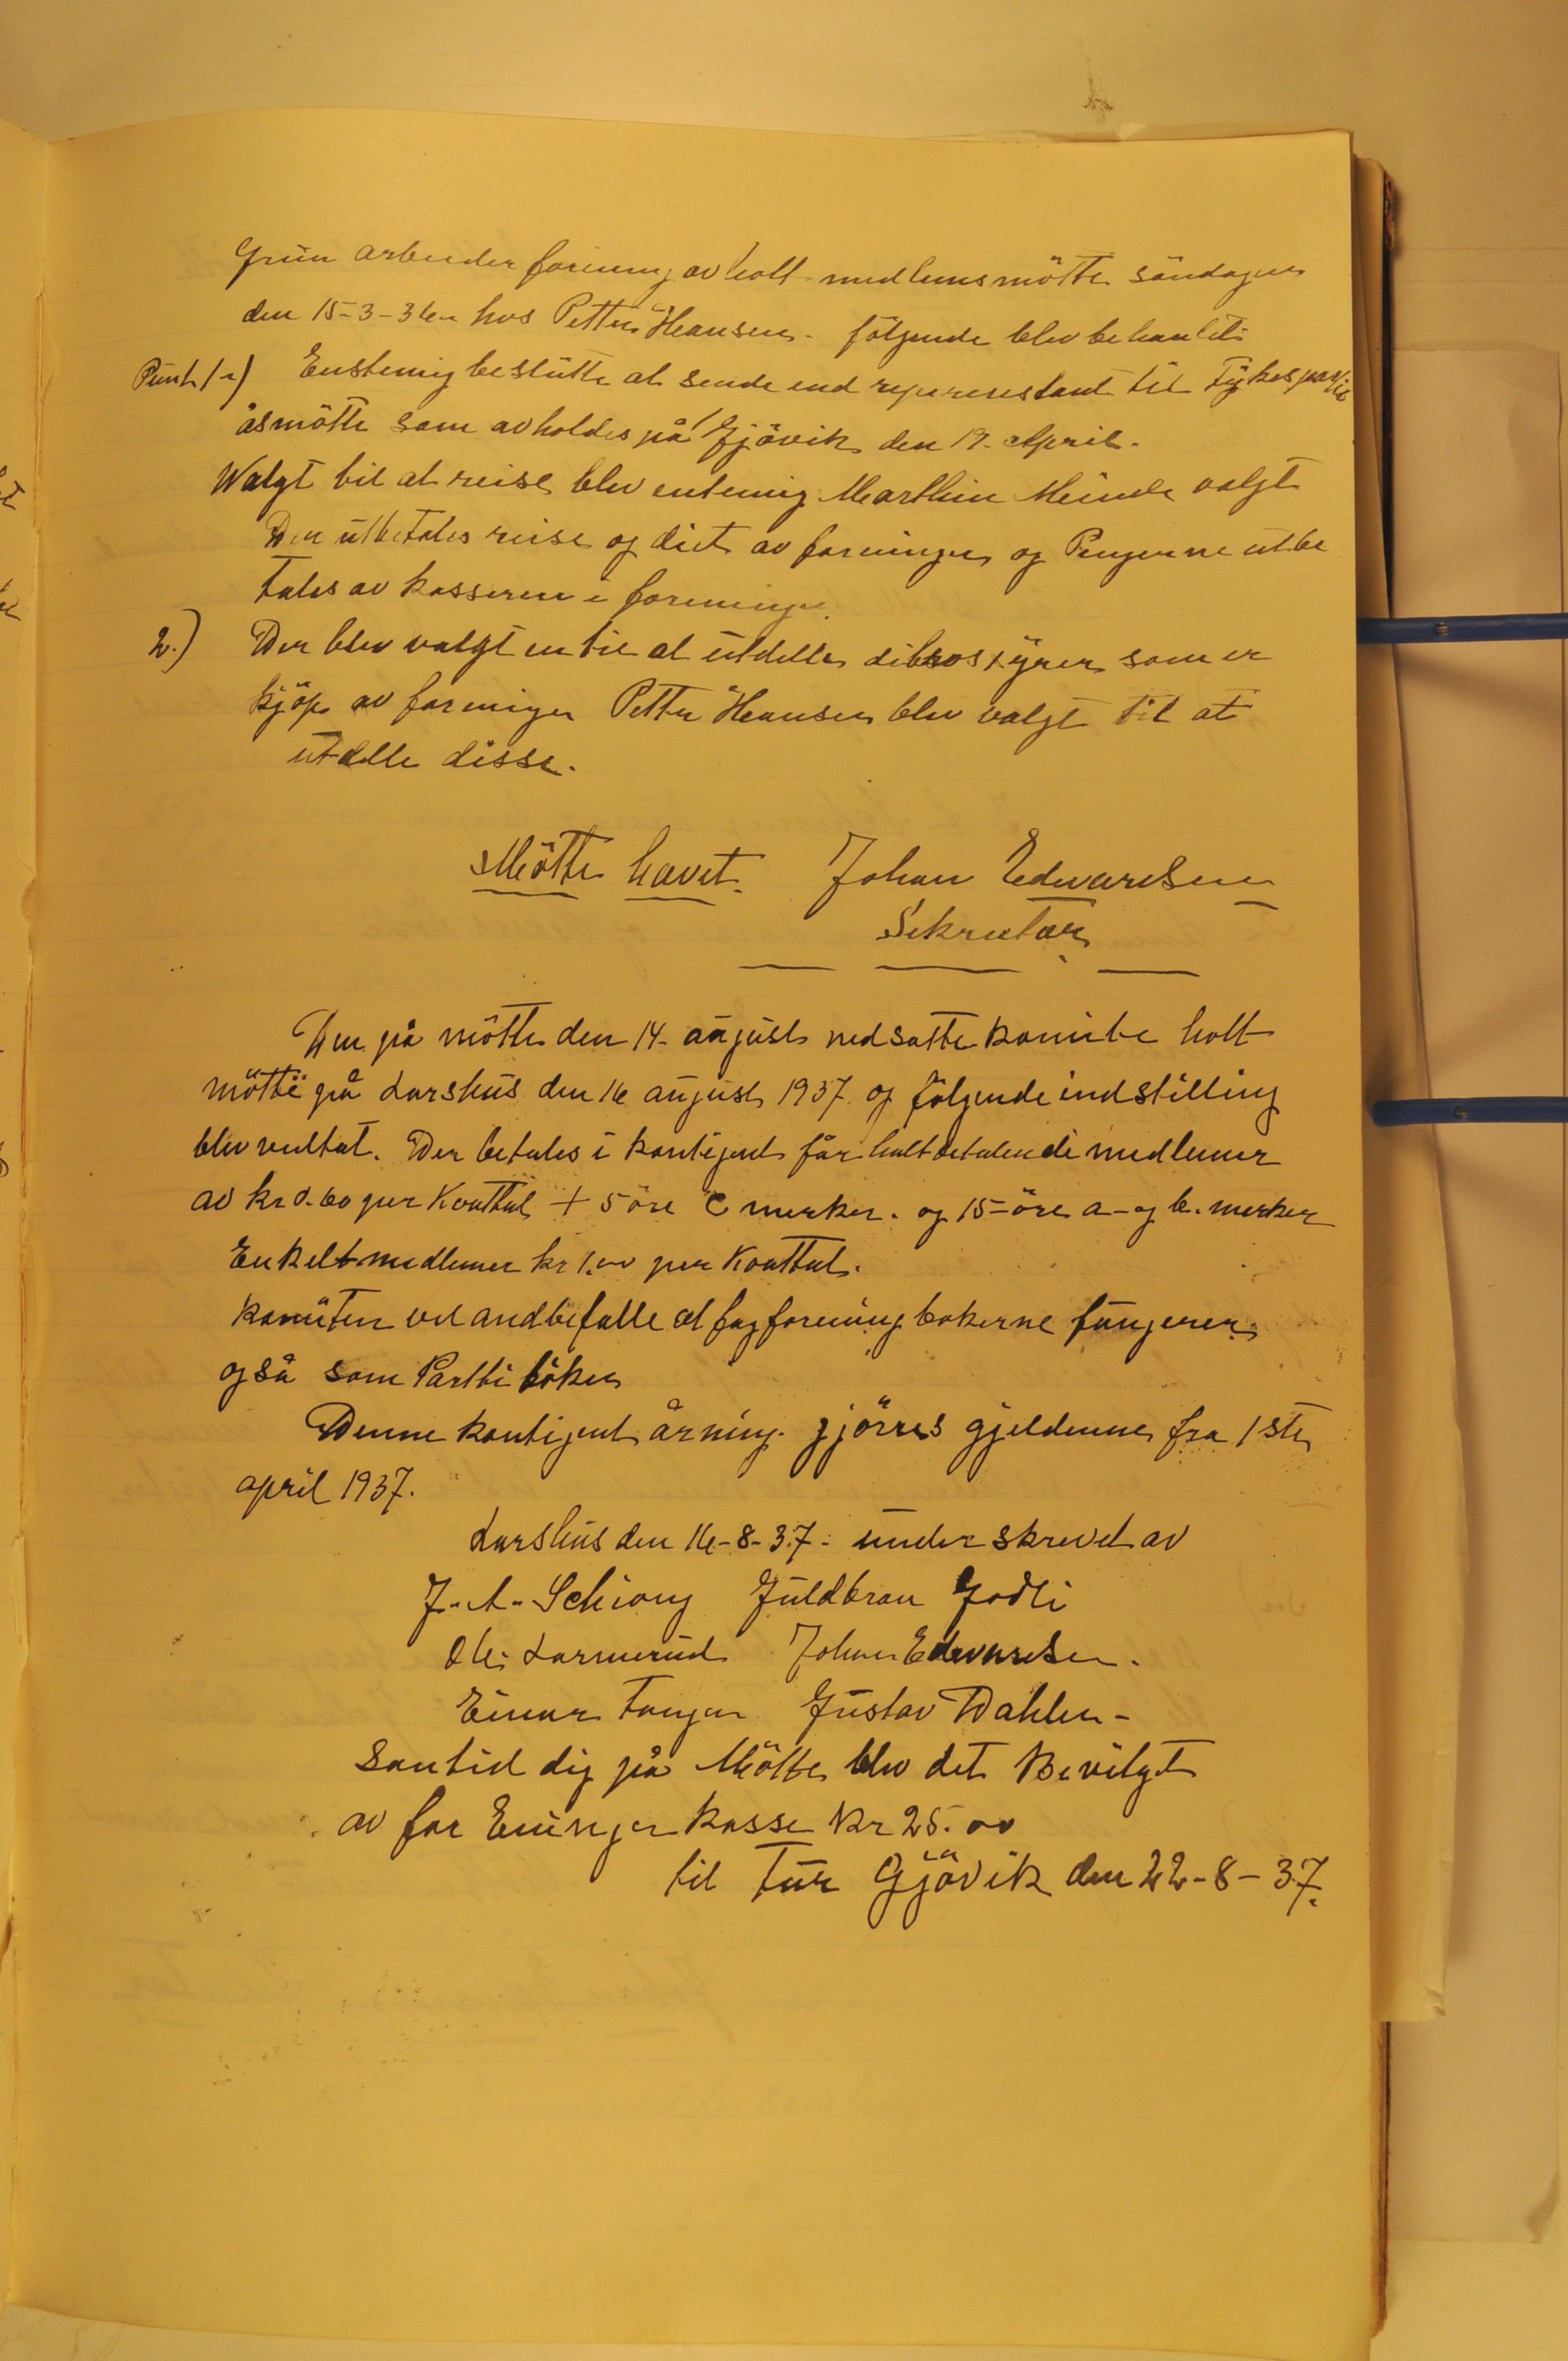 Grün arbeider forening avholt medlemsmötte söndagen
den 15-3-36 hos Petter Hansen. följende blev behanlet
Punt 1) Enstemig beslütte at sende end representant til fylkesparti
åsmötte som avholdes på Gjövik den 19. April.
Walgt til at reise blev entemig Marthin valgt
Der utbetales reise og diet av foreningen og Pengerne utbe
tales av kasseren i foreningen.
2.) Der blev valgt en til at utdelle som er
kjöp av foreningen Petter Hansen blev valgt til at
utdelle disse.
Mötte hævet. Johan Edvardsen
Sekretær
Den på mötte den 14. august nedsatte komite holt
mötte på Larshus den 16 august 1937 og fölgende indstilling
blev vedtat. Der betales i kontigent får halvbetalende medlemer
av kr 0.60 per Kvattal + 5 öre C merker. og 15 öre a- og b. merker
Enkelt medlemer kr 1.00 per Kvattal.
Komiten vil andbefalle at fagforening bokerne fungerer
også som Partti böker
Denne kontigent årning gjörres gjeldenne fra 1ste
april 1937.
Larshus den 16-8-37. under skrevet av
J. A. Schiong Guldbran Jodli
Ole Larmerud Johan Edvardsen.
Einar Tangen Gustav Dahlen-
Samtid dig på Mötte blev det Bevilget
av for Eninger kasse Kr 25.00
til Tur Gjövik den 22-8-37.